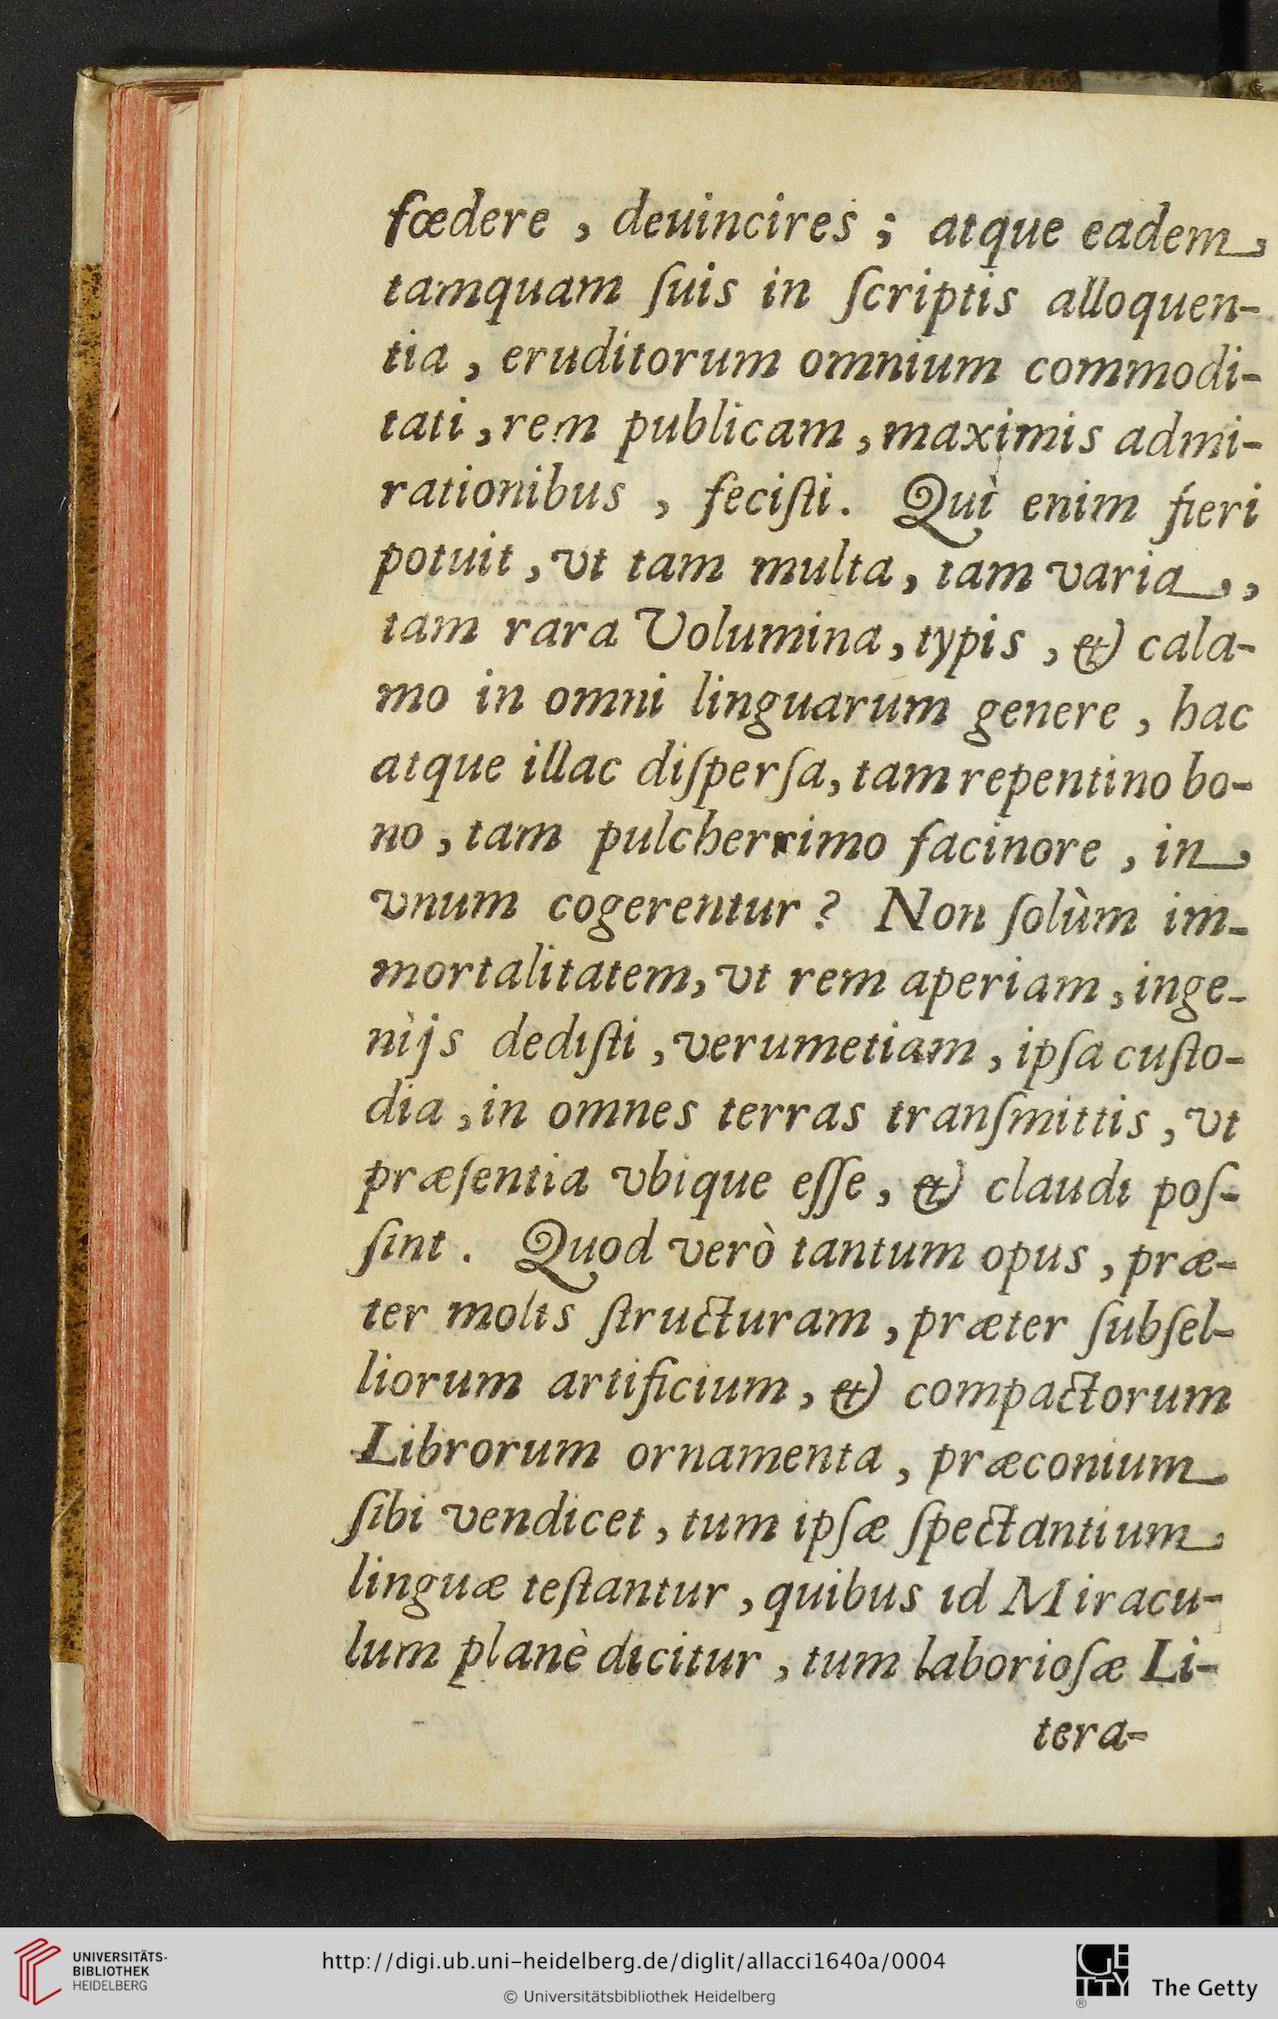 fœdere , deuincires ; atque eadem
tamquam ſuis in ſcriptis alloquen-
tia , eruditorum omnium commodi-
tati , rem publicam , maximis admi-
rationibus , feciſti. Quì enim fieri
potuit , vt tam multa, tam varia ,
tam rara Volumina, typis , & cala-
mo in omni linguarum genere , hac
atque illac diſperſa, tam repentino bo-
no , tam pulcherrimo facinore , in
vnum cogerentur ? Non ſolùm im-
mortalitatem, vt rem aperiam , inge-
nijs dediſti , verumetiam , ipſa cuſto-
dia , in omnes terras tranſmittis , vt
præſentia vbique eſſe , & claudi poſ-
ſint . Quod verò tantum opus , præ-
ter molis ſtructuram , præter ſubſel-
liorum artificium , & compactorum
Librorum ornamenta , præconium
ſibi vendicet , tum ipſæ ſpectantium
linguæ teſtantur , quibus id Miracu-
lum planè dicitur , tum laborioſæ Li-
tera-
UNIVERSITÄTS-
BIBLIOTHEK
HEIDELBERG
http://digi.ub.uni-heidelberg.de/diglit/allacci1640a/0004
© Universitätsbibliothek Heidelberg
GE
TTY
®
The Getty